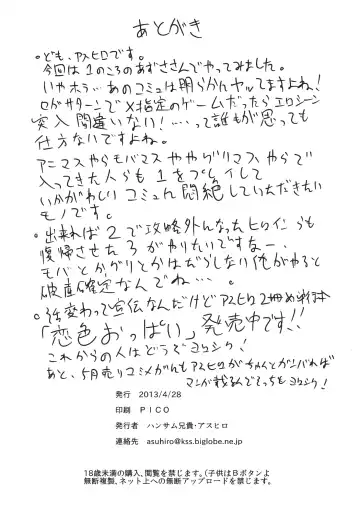 あとがき
○ども、アスヒロです。
今回は1のころのあずささんでやってみました。
いやホラ…あのコミュは明らかにヤッてますよね!
セガサターンでX指定のゲームだったらエロシーン
突入間違いない!……って誰もが思っても
仕方ないですよね。
アニマスやらモバマスややグリマスやらで
入ってきた人らも1をプレイして
いかがわしいコミュに悶絶していただきたい
モノです。
○出来れば2で攻略外になったヒロインらも
復帰させた3がやりたいですなー、
モバとかグリとかはだらしない俺がやると
破産確定なんでね…。
○話変わって宣伝なんだけどアスヒロ2冊め単行本
「恋色おっぱい」発売中です!!
これからの人はどうぞヨロシク!
あと、5月売りコミメガにもアスヒロがちゃんとガンバれば
マンガ載るんでそっちもヨロシク!
発行 2013/4/28
印刷 PICO
発行者 ハンサム兄貴・アスヒロ
連絡先 asuhiro@kss.biglobe.ne.jp
18歳未満の購入、閲覧を禁じます。(子供はBボタンよ
無断複製、ネット上への無断アップロードを禁じます。